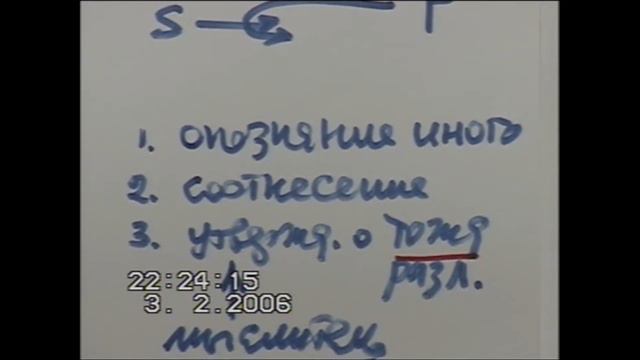 S P
1. опознание иного
2. соотнесение
3. утвержд. о тожд
22:24:15 разл.
3. 2.2006
мыслитель